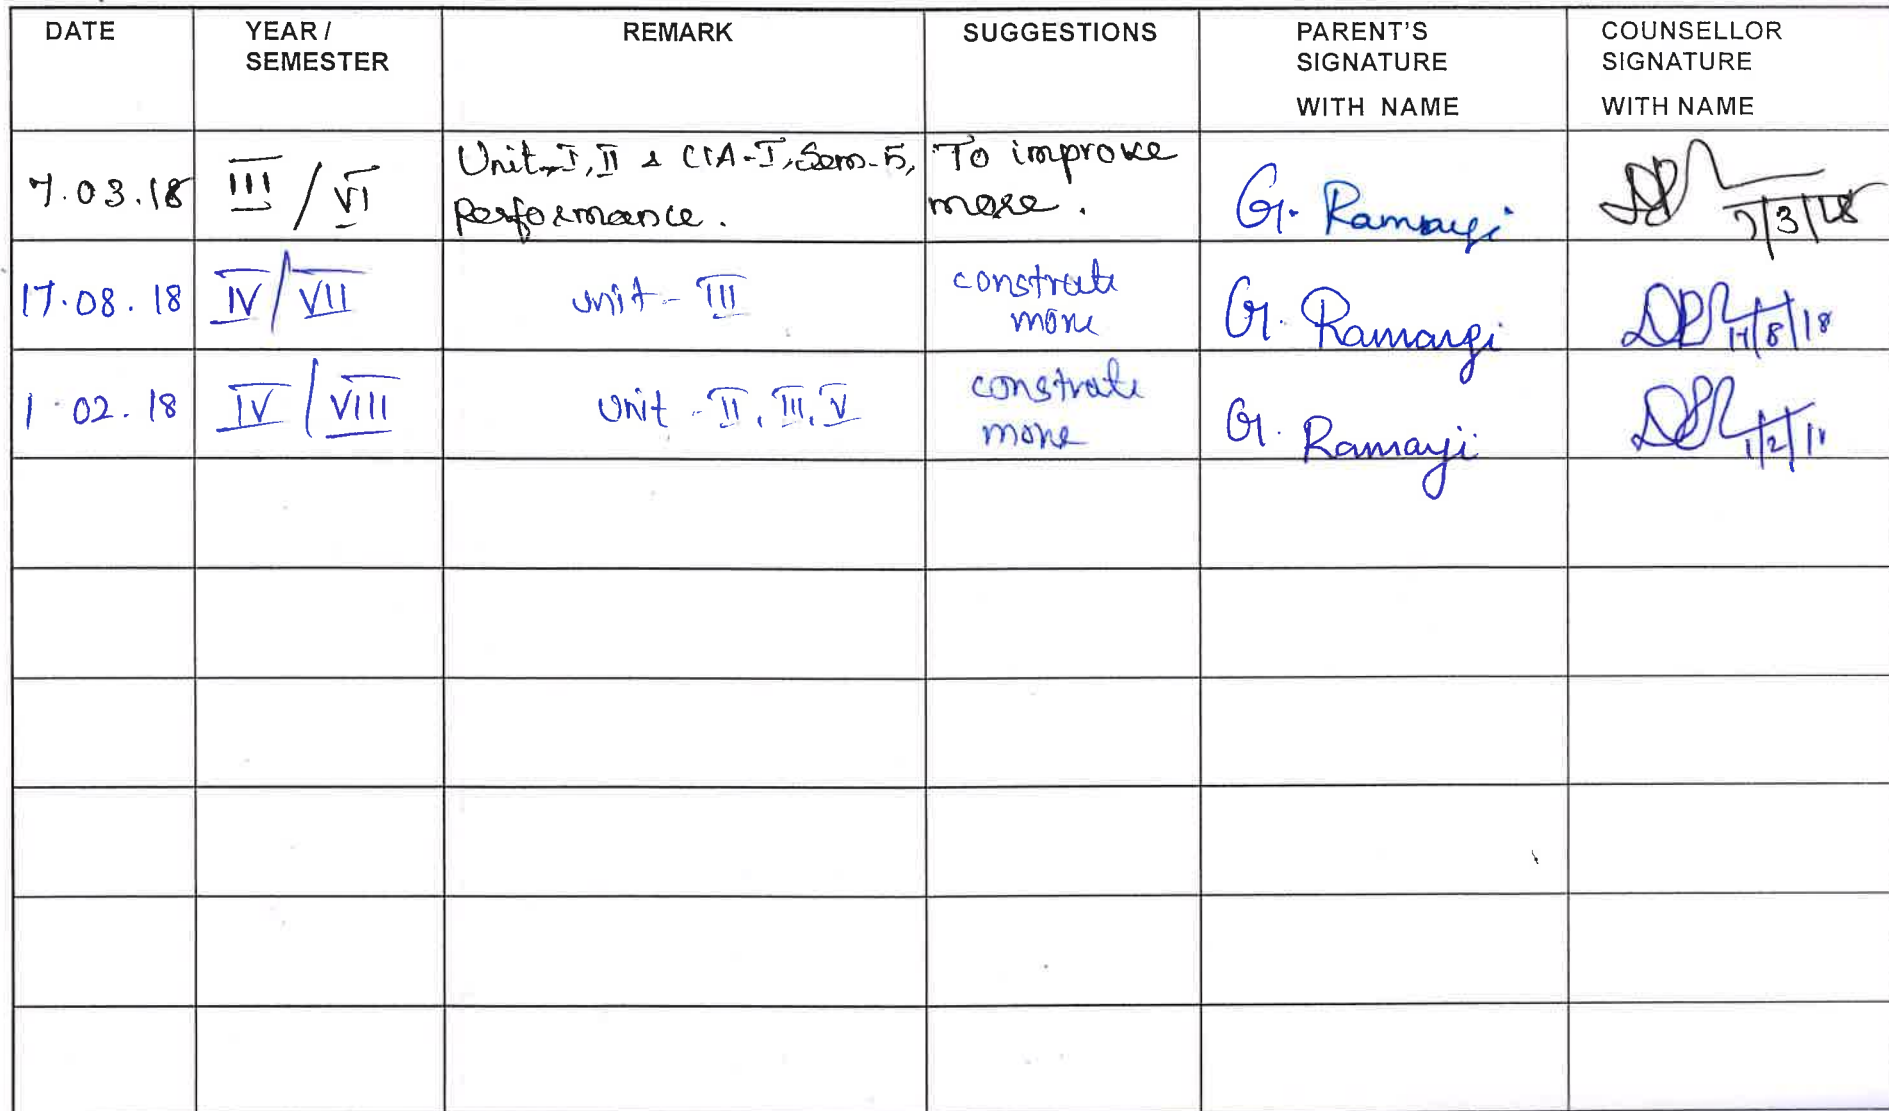 DATE YEAR / SEMESTER REMARK SUGGESTIONS PARENT'S SIGNATURE WITH NAME COUNSELLOR SIGNATURE WITH NAME
7.03.18 III / VI Unit-I, II & CIA-I, Sem-5, Performance. To improve more. G. Ramayi 7/3/18
17.08.18 IV / VII unit - III constrate more G. Ramayi 17/8/18
1.02.18 IV / VIII Unit - II, III, V constrate more G. Ramayi 1/2/18